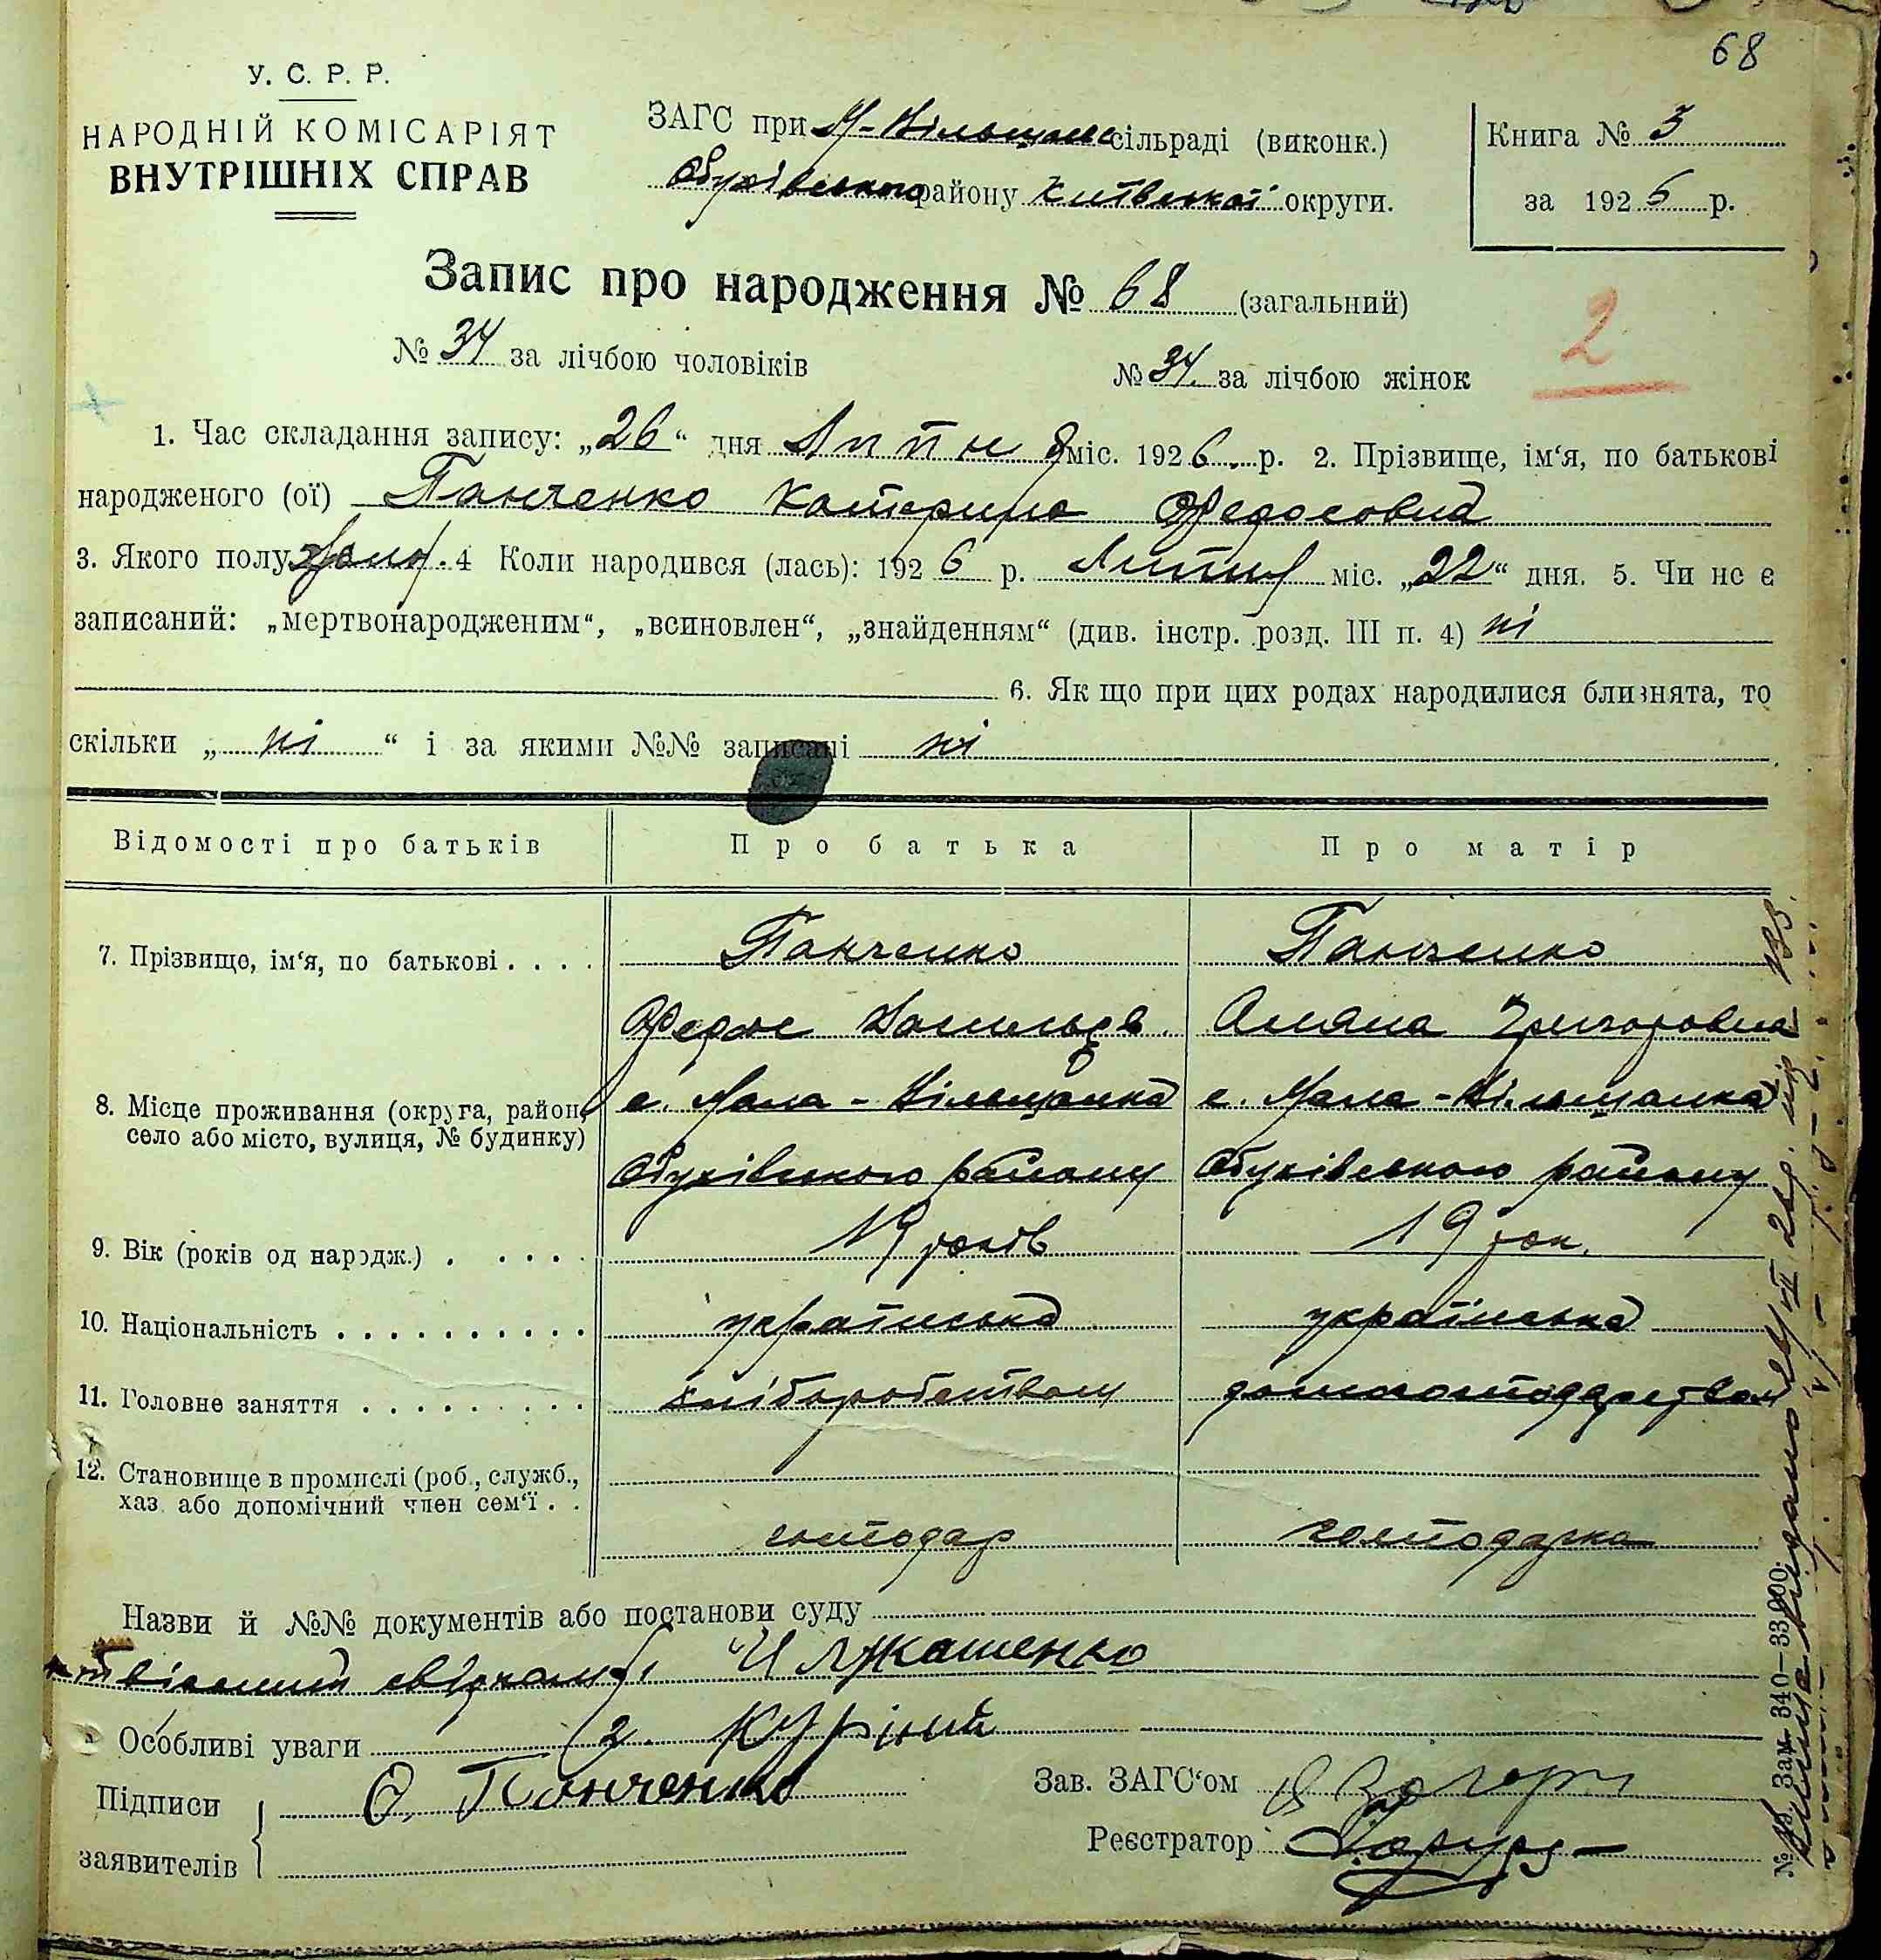 68
У. С. Р. Р.
НАРОДНІЙ КОМІСАРІЯТ
ВНУТРІШНІХ СПРАВ
ЗАГС при М-Вільшанс сільраді (виконк.)
Обухівського району Київської округи.
Книга № 3
за 1926 р.
Запис про народження № 68 (загальний)
№ 34 за лічбою чоловіків
№ 34 за лічбою жінок
2
1. Час складання запису: „26“ дня Липня міс. 1926 р. 2. Прізвище, ім‘я, по батькові
народженого (ої) Панченко Катерина Федосовна
3. Якого полу жіно. 4 Коли народився (лась): 1926 р. Липня міс. „22“ дня. 5. Чи не є
записаний: „мертвонародженим“, „всиновлен“, „знайденням“ (див. інстр. розд. III п. 4) ні
6. Як що при цих родах народилися близнята, то
скільки „ ні “ і за якими №№ записані ні
Відомості про батьків Про батька Про матір
7. Прізвище, ім‘я, по батькові . . . . Панченко Панченко
Федос Васильов. Григоровна
8. Місце проживання (округа, район, с. Мала-Вільшанка с. Мала-Вільшанка
село або місто, вулиця, № будинку)
Обухівського району Обухівського району
9. Вік (років од народж.) . . . . . 19 років 19 рок.
10. Національність . . . . . . . . . . українська українська
11. Головне заняття . . . . . . . . . хліборобством домогосподарством
12. Становище в промислі (роб., служб.,
хаз. або допомічний член сем‘ї . .
господар господарка
Назви й №№ документів або постанови суду
свідками 1 И Лукашенко
Особливі уваги 2. Курінний
Підписи Ф. Панченко Зав. ЗАГС‘ом
заявителів Реєстратор
№ Зам. 340—33000.